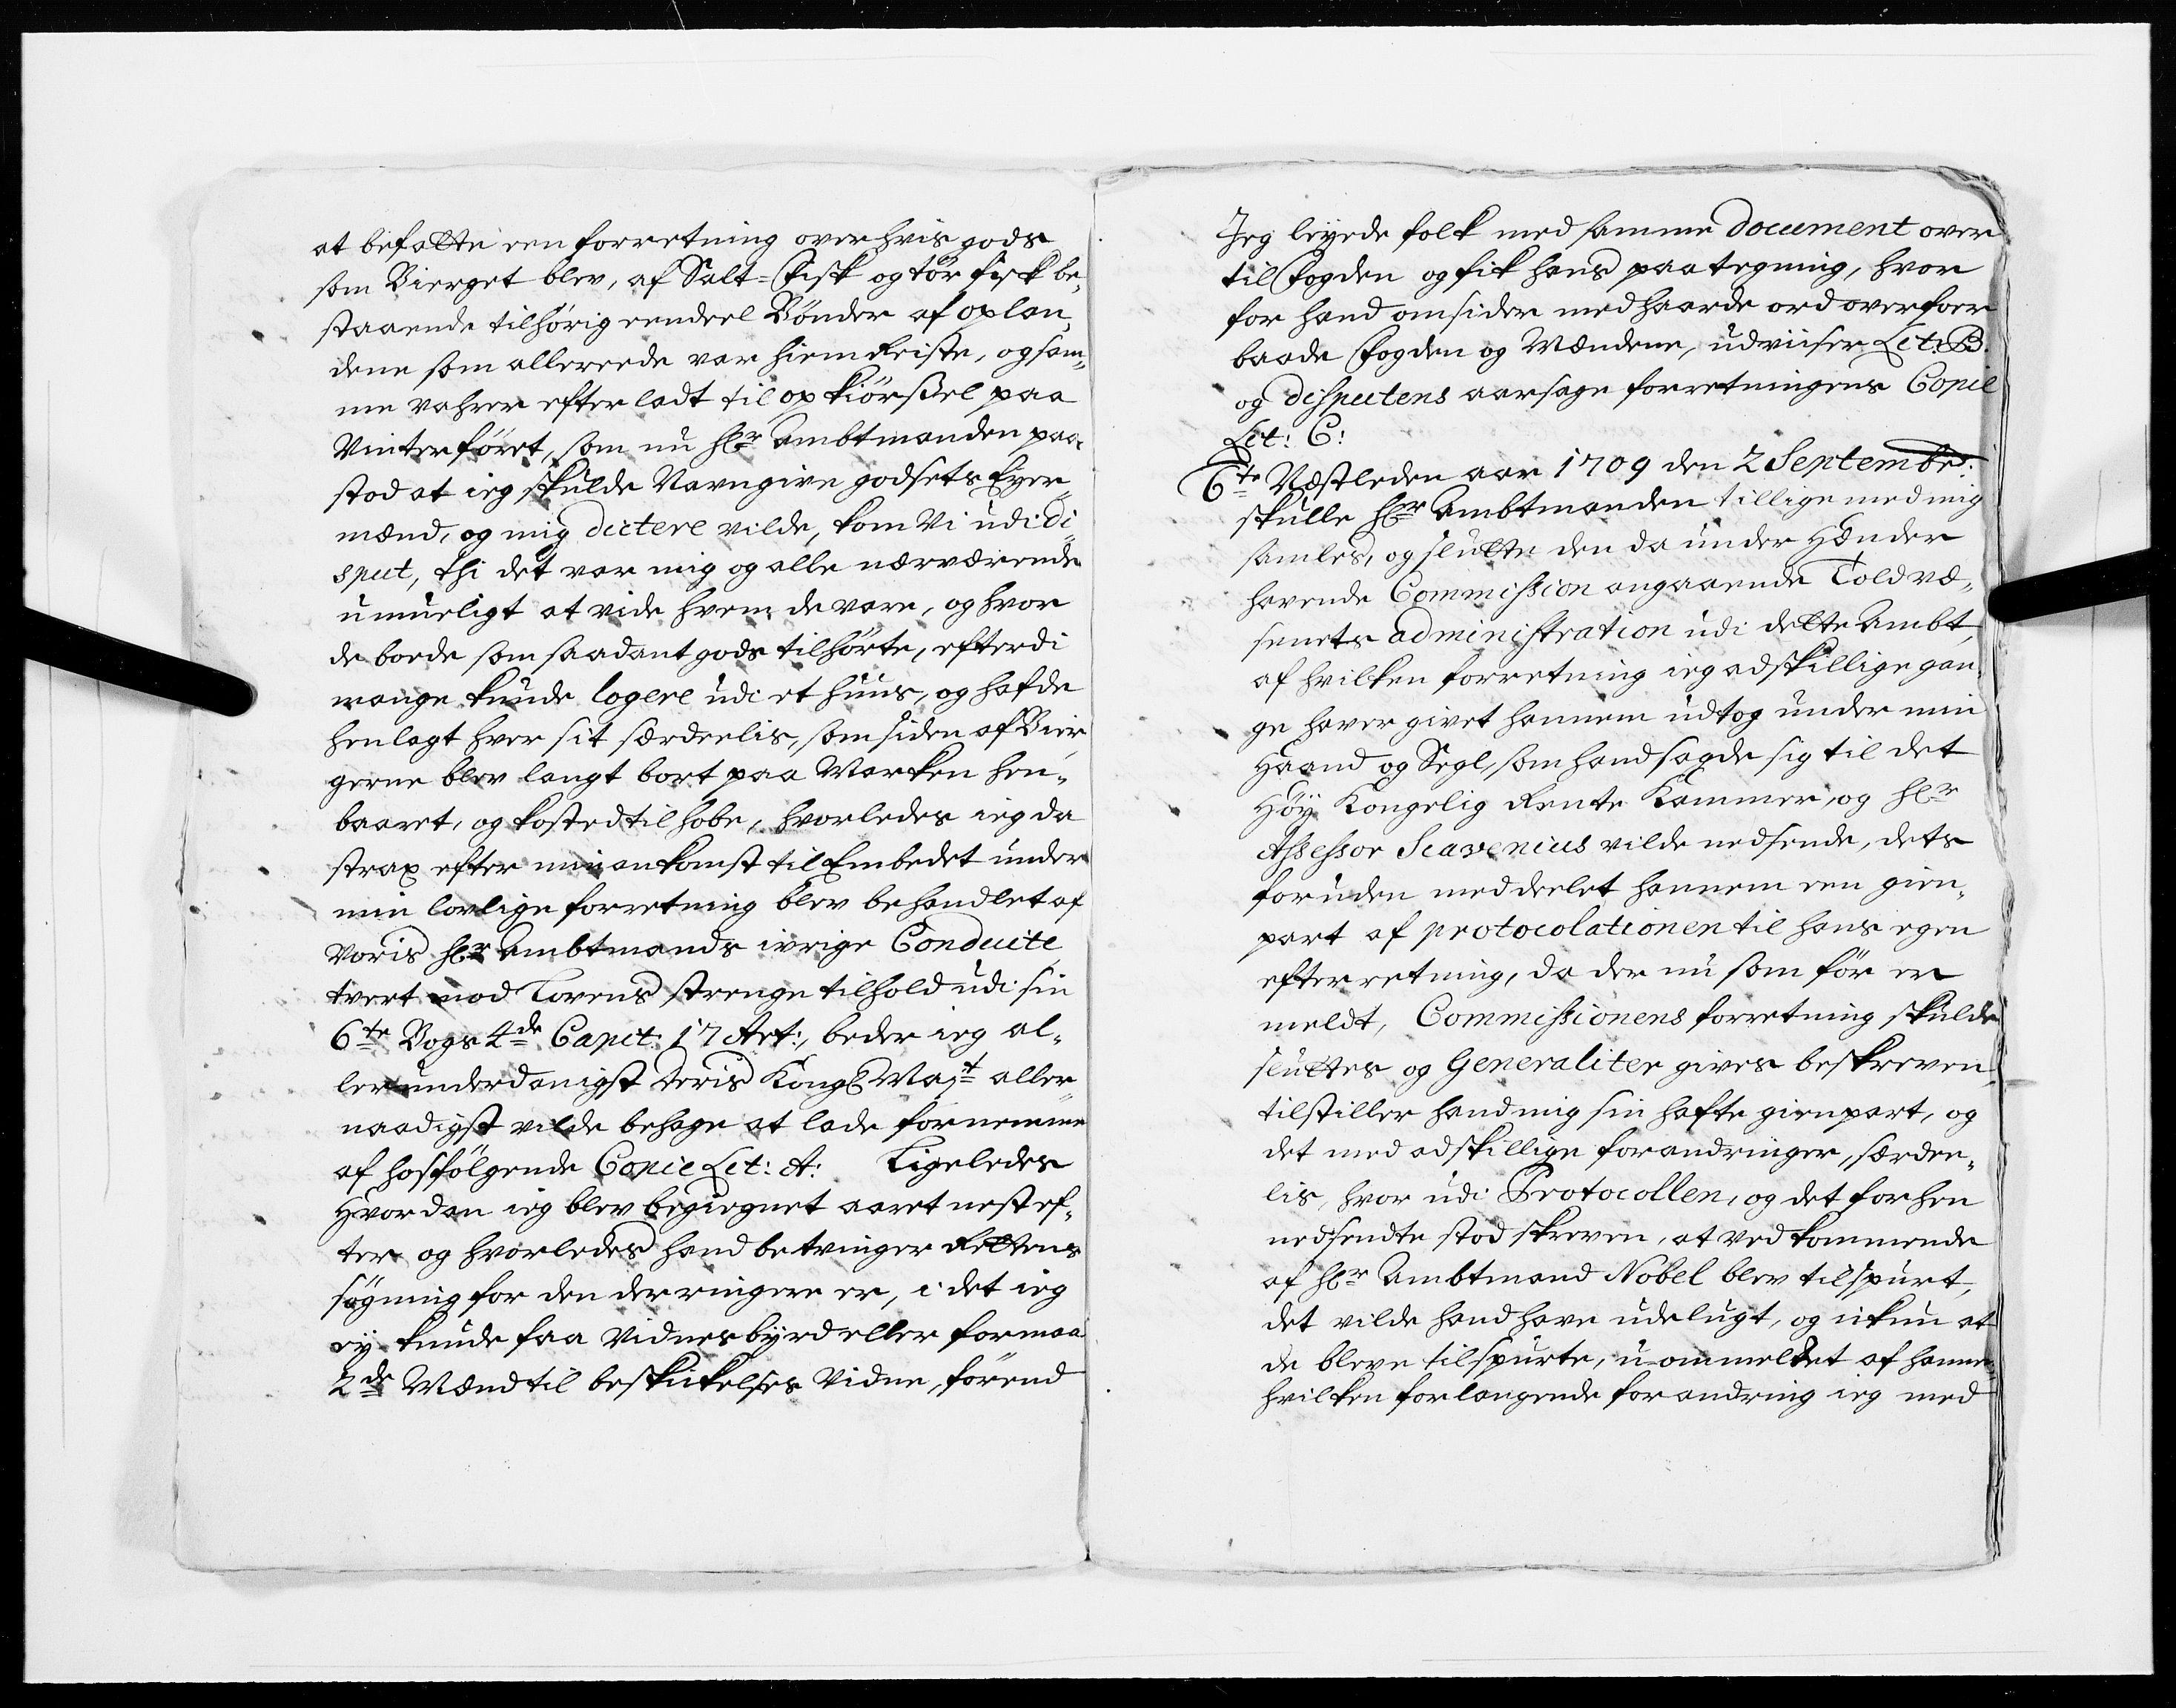 at befatte een forretning over hvis gods
som Bierget blev, af Salt-Fisk og tör fisk be„
staaende tilhörig eendeel Bönder af oplan„
dene som allereede var hiem Reiste, og sam„
me vahrer efterladt til op kiörssel paa
Vinterföret, som nu hr Ambtmanden paa„
stod at ieg skulde Navngive godsets Eyer„
mænd, og mig dictere vilde, kom Vi udi di„
sput, thi det var mig og alle nærværende
umueligt at vide hvem de vare, og hvor
de boede som saadant gods tilhörte, efterdi
mange kunde logere udi et huus, og hafde
henlagt hver sit særdeelis, som siden af Bier„
gerne blev langt bort paa Marken hen„
baaret, og kosted til hobe, hvorledes ieg da
strax efter min ankomst til Embedet under
min lovlige forretning blev behandlet af
Voris hr Ambtmands ivrige Conduite
tvert mod Lovens strenge tilhold udi sin
6te Bogs 4de Capit: 17 Art:, beder ieg al„
lerunderdanigst Deris Kongl Mayt aller„
naadigst vilde behage at lade fornemme
af hosfölgende Copie Lit: A: Ligeledes
Hvordan ieg blev begiegnet aaret nest ef„
ter og hvorledes hand betvinger Rettens
sögning for den der ringere er, i det ieg
ey kunde faa Vidnesbyrd eller formaa
2de Mænd til beskikelses Vidne, förend
Jeg leyede folk med samme document over
til Fogden og fik hans paategning, hvor
for hand omsider med haarde ord overfoer
baade Fogden og Mændene, udviiser Lit: B.
og disputens aarsage forretningens Copie
Lit: C:
6te Næstleden aar 1709 den 2 Septembr:
skulle hr Ambtmanden tillige med mig
samles, og slutte den da under Hænder
havende Commission angaaende Toldvæ„
senets administration udi dette Ambt,
af hvilken forretning ieg adskillige gan„
ge haver givet hannem udtog under min
Haand og Segl, som hand sagde sig til det
Höy Kongelig Rente Kammer, og hr
Assessor Scavenius vilde nedsende, dets
foruden meddeelet hannem een gien„
part af protocolationen til hans egen
efterretning, da der nu som för er
meldt, Commissionens forretning skulde
sluttes og Generaliter gives beskreven,
tilstiller hand mig sin hafte gienpart, og
det med adskillige forandringer, særdee„
lis, hvor udi Protocollen, og det forhen
nedsendte stod skreven, at vedkommende
af hr Ambtmand Nobel blev tilspurt,
det vilde hand have udelugt, og ikun at
de bleve tilspurte, u-ommeldet af hanne„
hvilken forlangende forandring ieg med